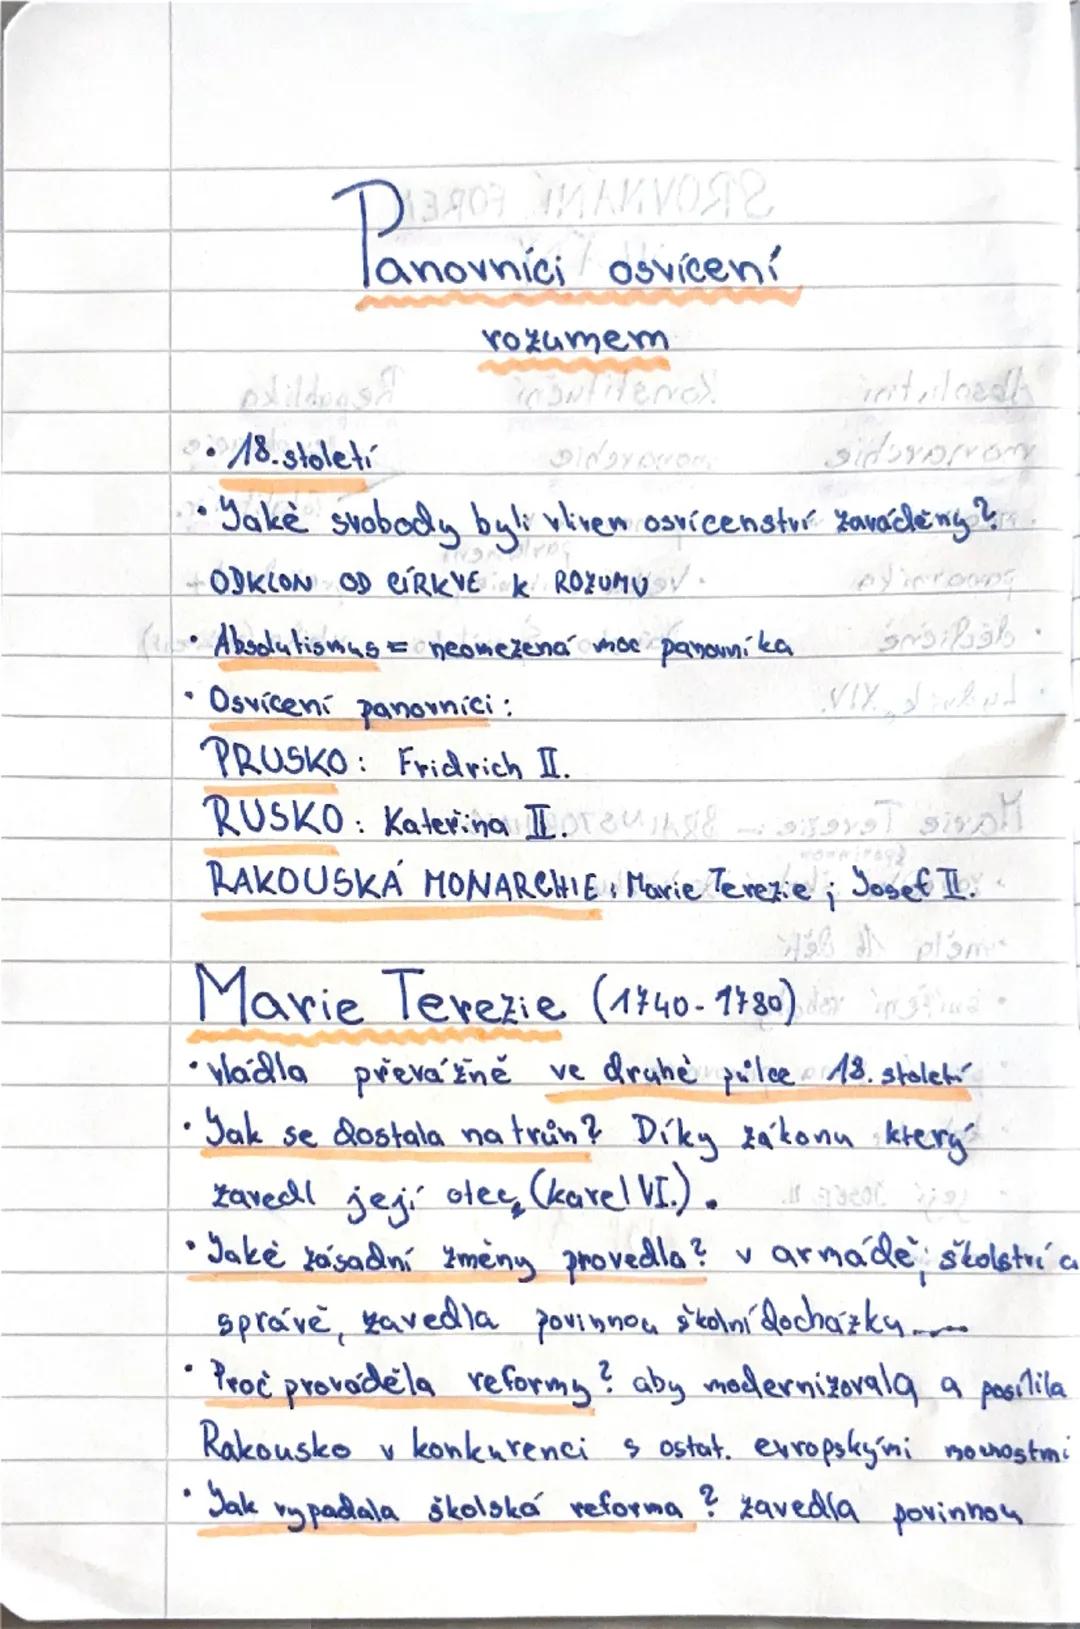 Panovníci osvícení
rozumem
• 18. století
• Jaké svobody byli vlivem osvícenství zaváděny?
ODKLON OD CÍRKVE K ROZUMU
• Absolutismus = neomezená moc panovníka
• Osvícení panovníci:
PRUSKO: Fridrich II.
RUSKO: Kateřina II.
RAKOUSKÁ MONARCHIE: Marie Terezie; Josef II.
Marie Terezie (1740-1780)
• vládla převážně ve druhé půlce 18. století
• Jak se dostala na trůn? Díky zákonu který
zavedl její otec, (karel VI.).
• Jaké zásadní změny provedla? v armádě, školství a
správě, zavedla povinnou školní docházku
• Proč prováděla reformy? aby modernizovala a posílila
Rakousko v konkurenci s ostat. evropskými mocnostmi
• Jak vypadala školská reforma? zavedla povinnou